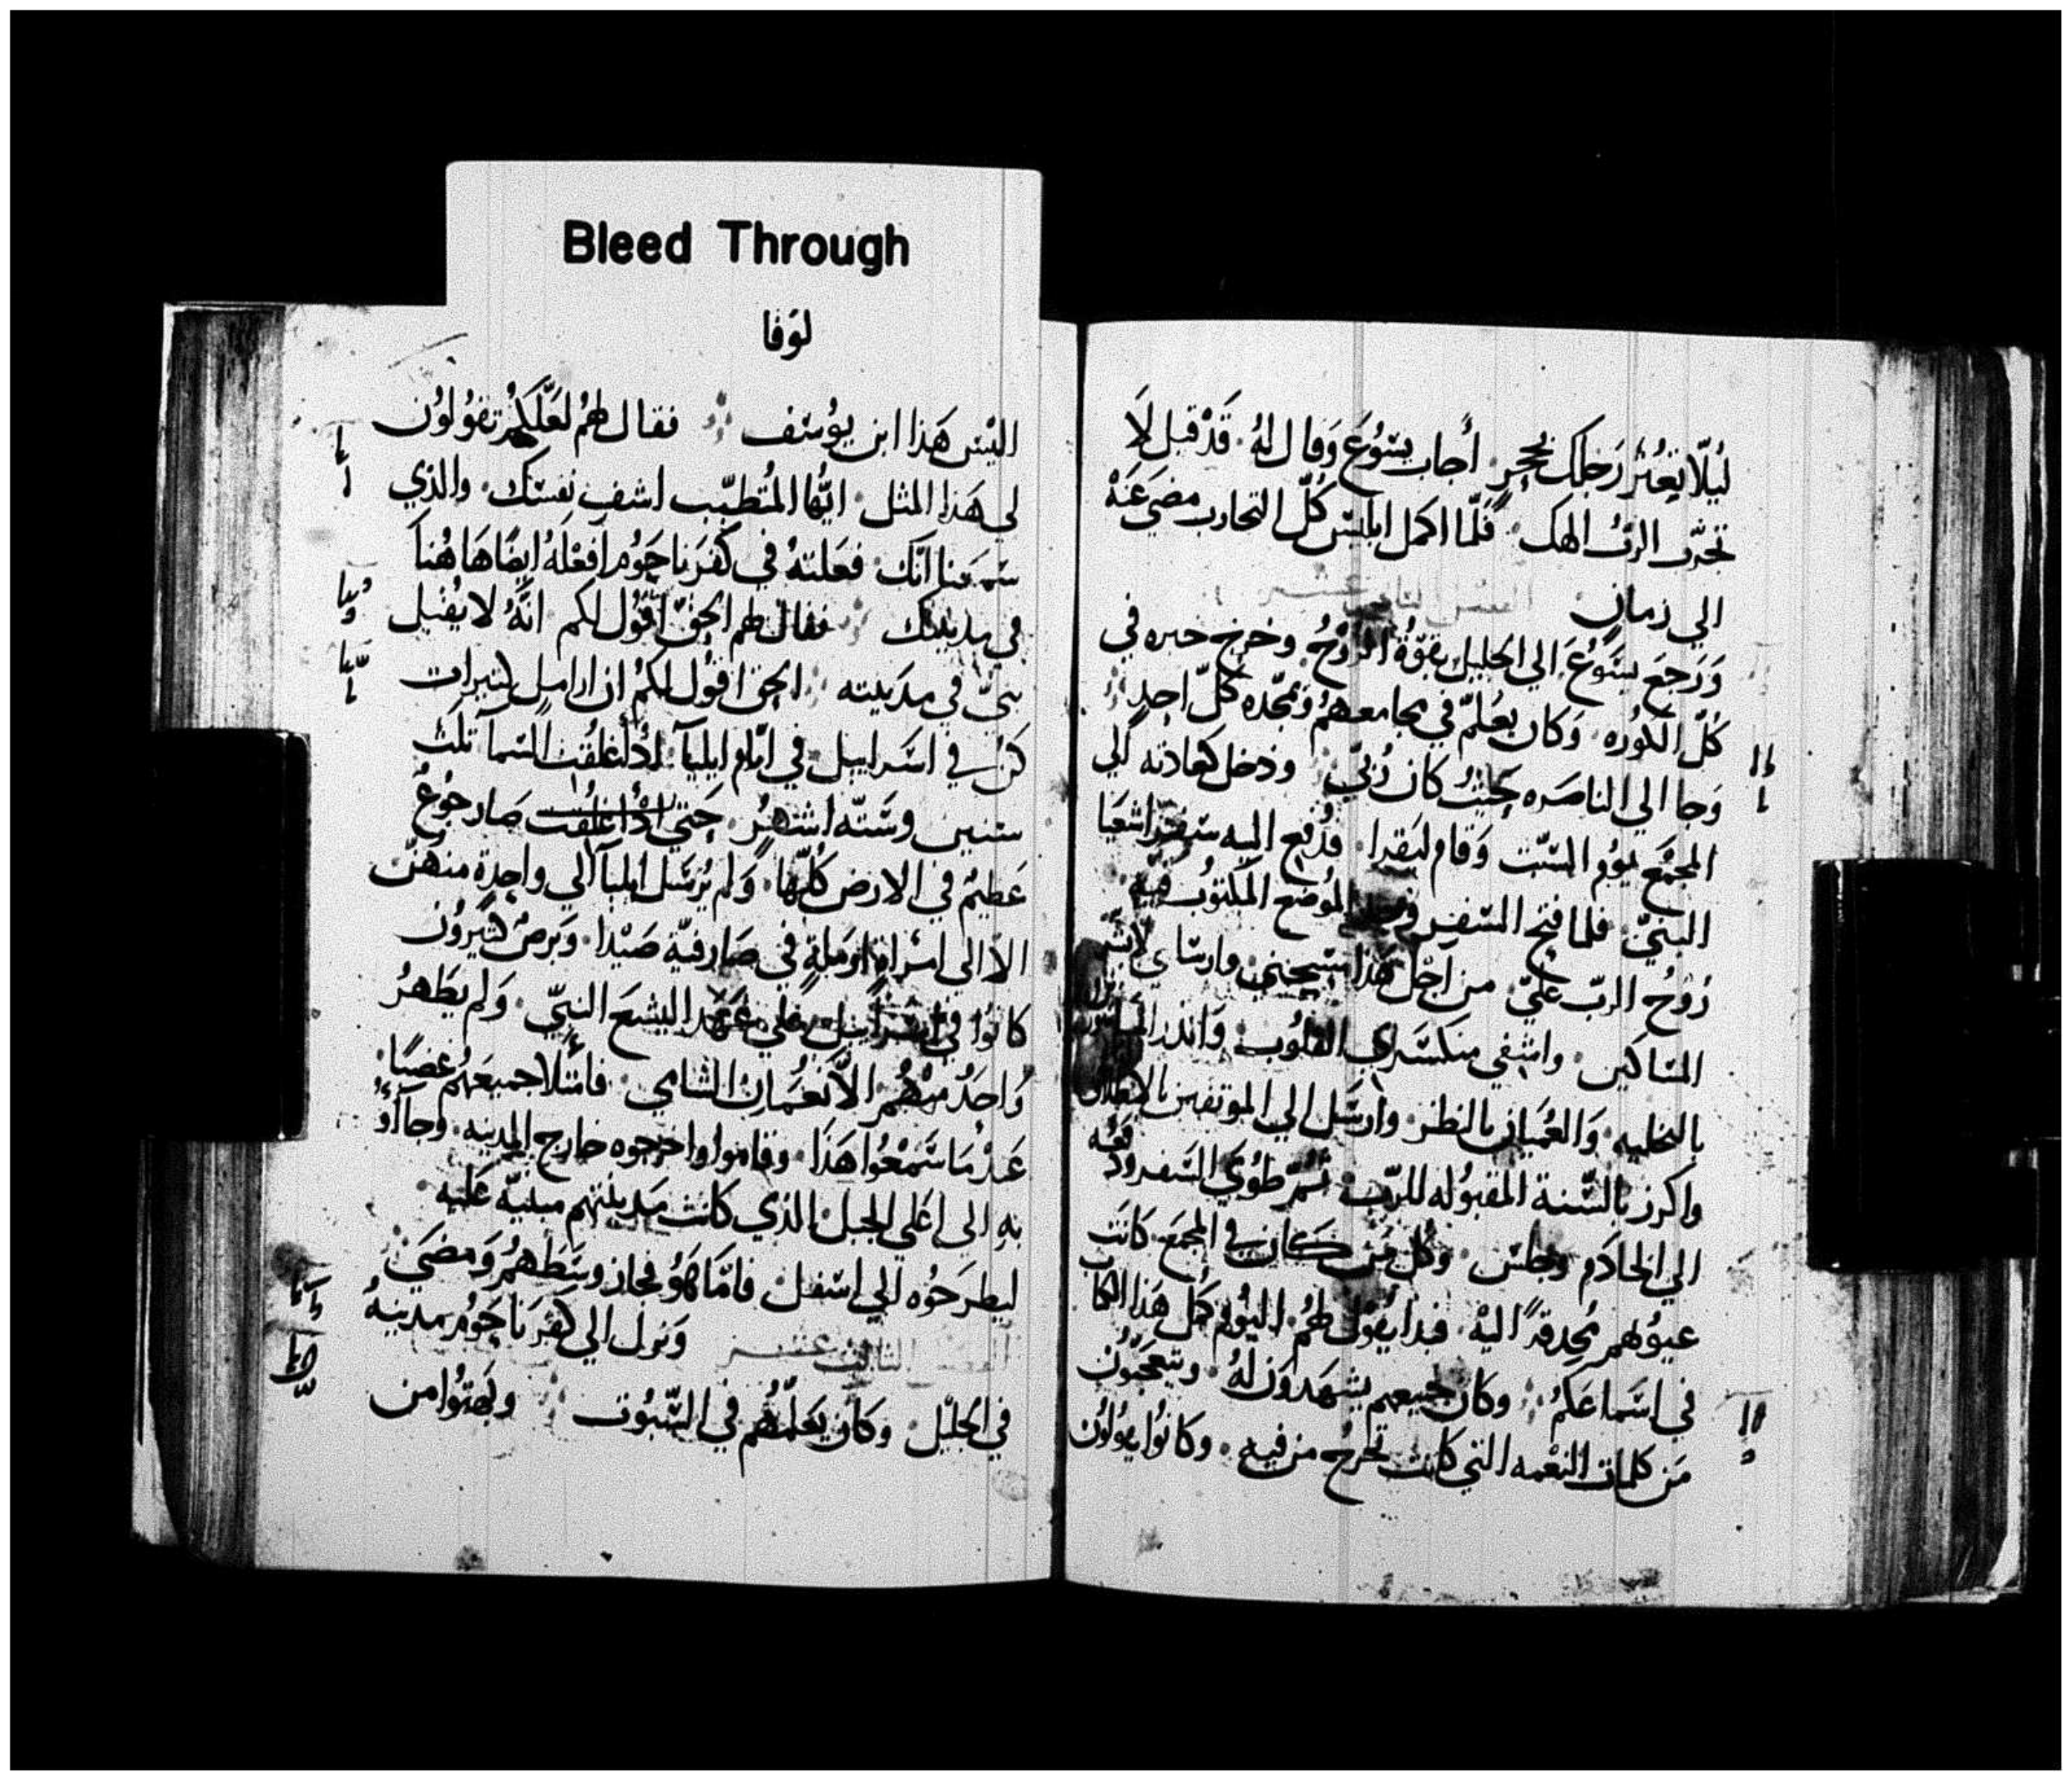 Bleed Through
لوقا
ليلّا تعثر رجلك بحجر. أجاب يسوع وقال له. قد قيل لا
تجرّب الربّ الهك. فلمّا اكمل ابليس كلّ التجارب مضي عنه
الي زمان.
ورجع يسوع الي الجليل بقوّة الروح. وخرج خبره في
كلّ الكوره. وكان يعلّم في مجامعهم ويمجّده كلّ احدٍ
وجا الي الناصره بحيث كان رُبّي ودخل كعادته الي
المجمع يوم السبت وقام ليقرا. فدفع اليه سفر اشعيا
النبيّ. فلما فتح السفر وجد الموضع المكتوب فيه
روح الربّ عليّ. من اجل هذا مسحني وارسلني لابشّر
المساكين. واشفي منكسري القلوب. وانذر
بالتخليه. والعميان بالنظر. وارسل الي الموثقين بالاطلاق
واكرز بالسّنة المقبوله للربّ. ثمّ طوي السفر ودفعه
الي الخادم وجلس. وكل من كان في المجمع كانت
عيونهم محدقةً اليه. فبدا يقول لهم. اليوم كمل هذا الكتاب
في اسماعكم. وكان جميعهم يشهدون له. ويتعجبون
من كلمات النعمه التي كانت تخرج من فيه. وكانوا يقولون
اليس هذا ابن يوسف فقال لهم لعلّكم تقولون
لي هذا المثل. ايها المتطبّب اشف نفسك. والذي
سمعنا انّك فعلته في كفرناحوم افعله ايضًا هاهُنا
في مدينتك فقال لهم الحقّ اقول لكم انّه لا يقبل
نبيّ في مدينته. الحق اقول لكم ان ارامل كثيرات
كنّ في اسراييل في ايّام ايليآ. اذ أُغلقت السمآ ثلث
سنين وستّه اشهر. حتي اذ أُغلقت صار جوعٌ
عظيم في الارض كلّها. ولم يُرسل ايليآ الي واحدة منهنّ
الّا الي امراة ارملةٍ في صارفيّة صيدا. وبرص كثيرون
كانوا في اسراييل علي عهد اليشع النبيّ. ولم يطهر
واحدٌ منهم الّا نعمان الشاي. فامتلا جميعهم غضبًا.
عند ما سمعوا هذا. وقاموا واخرجوه خارج المدينه. وجآأوُ
به الي اعلي الجبل الذي كانت مدينتهم مبنيّة عليه.
ليطرحوه الي اسفل. فامّا هو فجاز وسطهم ومضي
الفصل الثالث عشر ونزل الي كفرناحوم مدينة
في الجليل. وكان يعلّمهم في السبوت وبهتوا من